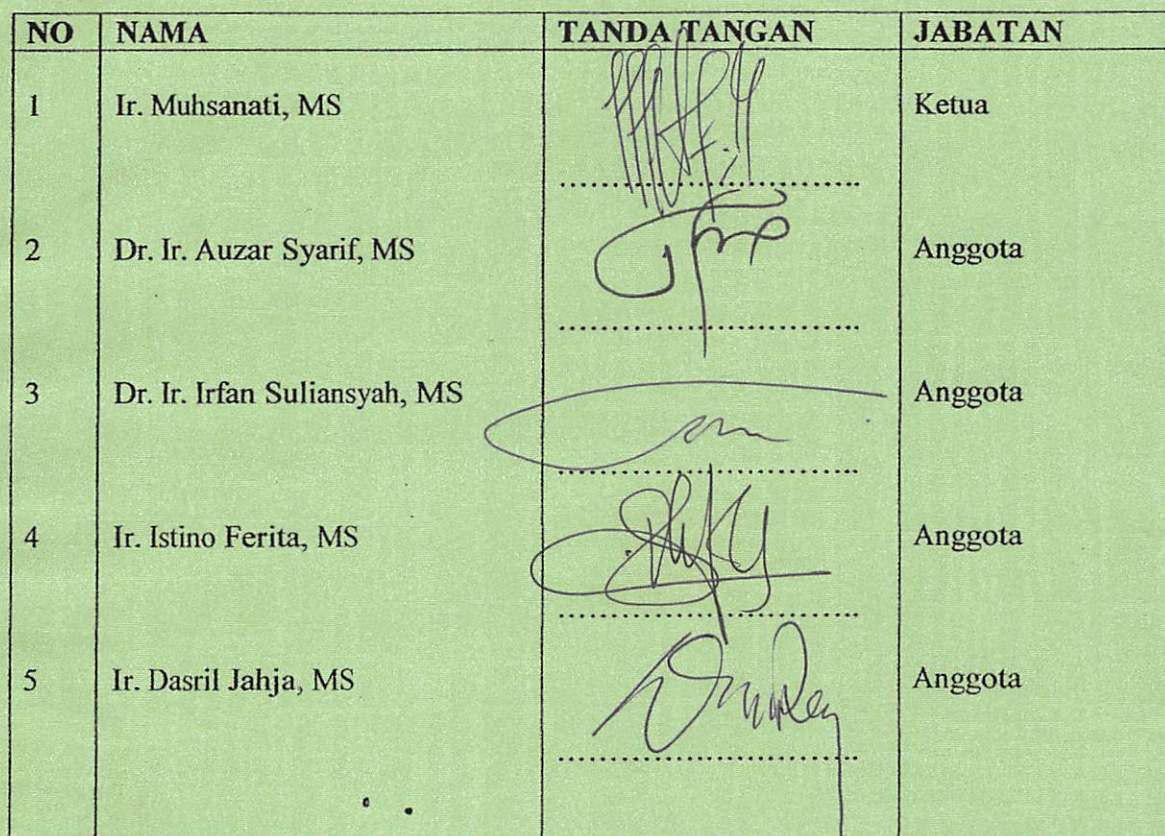 NO NAMA TANDA TANGAN JABATAN
1 Ir. Muhsanati, MS Ketua
2 Dr. Ir. Auzar Syarif, MS Anggota
3 Dr. Ir. Irfan Suliansyah, MS Anggota
4 Ir. Istino Ferita, MS Anggota
5 Ir. Dasril Jahja, MS Anggota